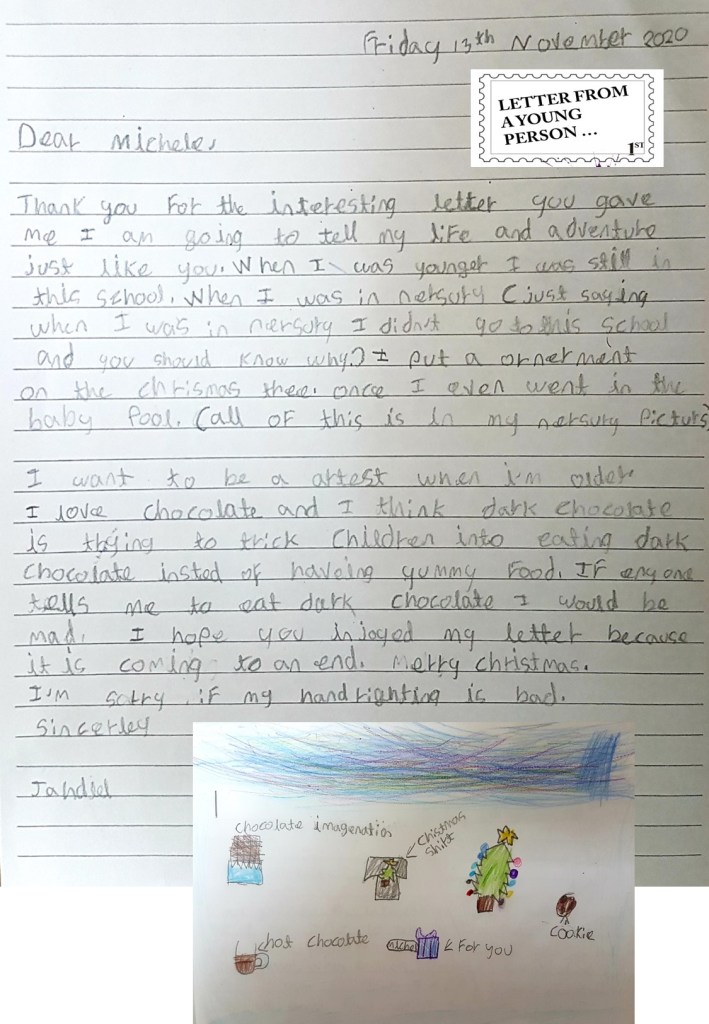 Friday 13th November 2020
LETTER FROM
A YOUNG
PERSON ...
1ST
Dear Michele,
Thank you For the interesting letter you gave
me I am going to tell my life and adventure
just like you. When I was younger I was still in
this school. When I was in nersury (just saying
when I was in nersury I didn't go to this school
and you should know why.) I put a ornerment
on the chrismas thee. once I even went in the
baby Pool. (all of this is in my nersury Picturs)
I want to be a artest when i'm older.
I love chocolate and I think dark chocolate
is trying to trick children into eating dark
chocolate insted of haveing yummy Food. IF enyone
tells me to eat dark chocolate I would be
mad. I hope you injoyed my letter because
it is coming to an end. Merry christmas.
I'm sorry if my hand righting is bad.
Sincerley
chocolate imagenation
Chistmas
shirt
cookie
hot chocolate
For you